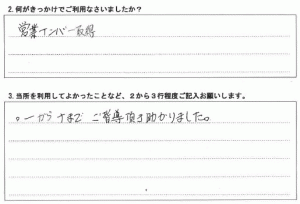 2. 何がきっかけでご利用なさいましたか？
営業ナンバー取得
3. 当所を利用してよかったことなど、２から３行程度ご記入お願いします。
。一から十まで ご指導頂き助かりました。